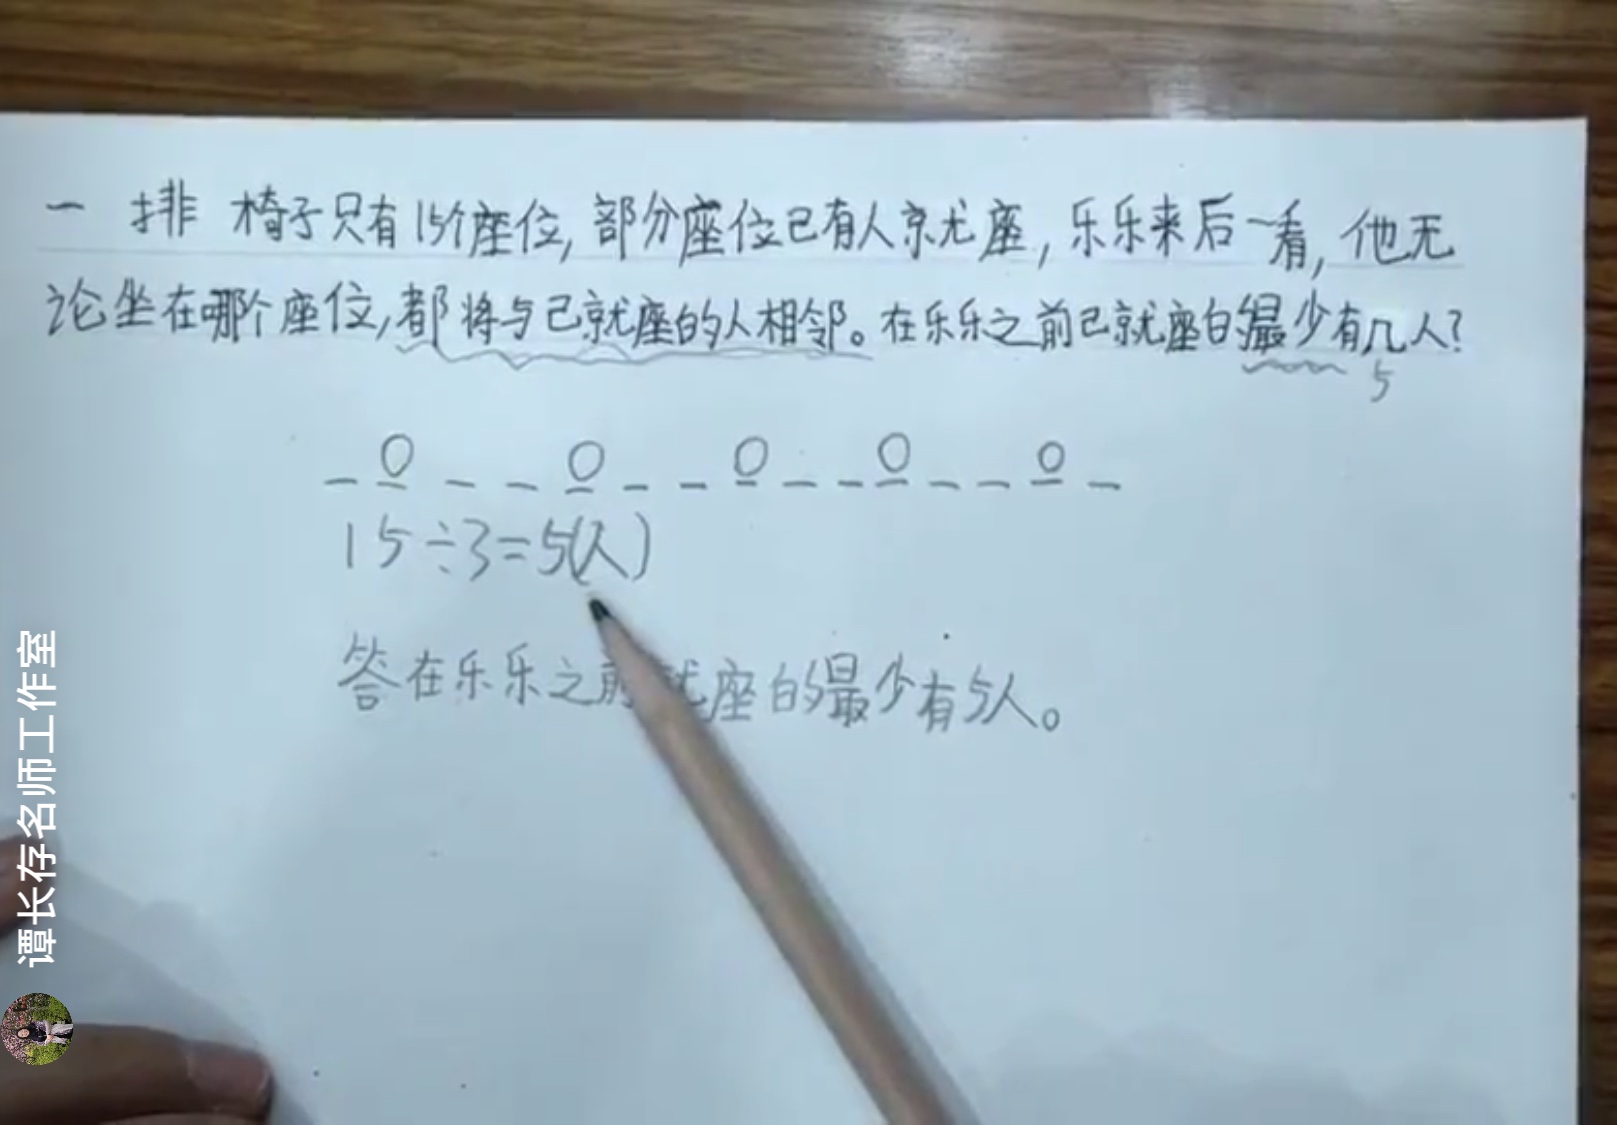 一排椅子只有15个座位,部分座位已有人就座,乐乐来后一看,他无
论坐在哪个座位,都将与已就座的人相邻。在乐乐之前已就座的最少有几人?
5
15÷3=5(人)
答在乐乐之前就座的最少有5人。
谭长存名师工作室